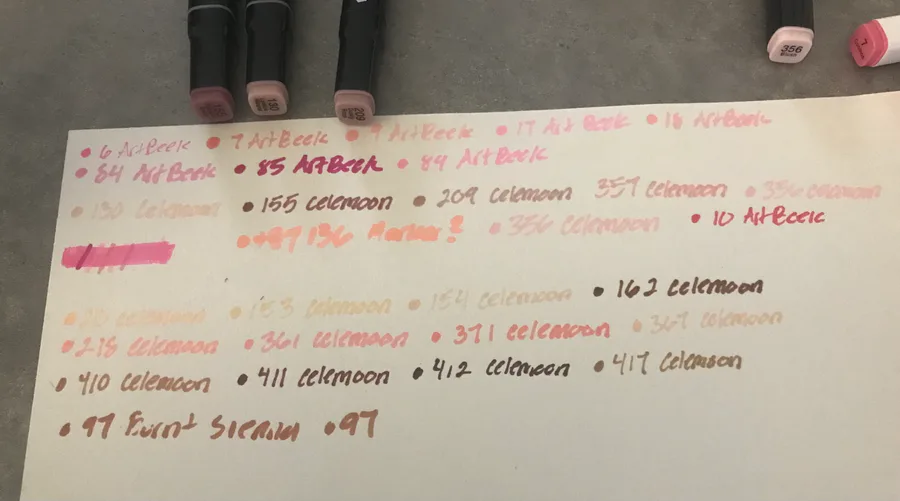 130
209
356
7
• 6 ArtBeek • 7 ArtBeek • 9 ArtBeek • 17 Art Beek • 18 ArtBeek
• 84 ArtBeek • 85 ArtBeek • 89 ArtBeek
• 130 Celemoon • 155 Celemoon • 209 Celemoon 357 Celemoon • 356 Celemoon
136 Marker? • 356 Celemoon • 10 ArtBeek
Celemoon • 153 Celemoon • 154 Celemoon • 162 Celemoon
• 218 Celemoon • 361 Celemoon • 371 Celemoon • 367 Celemoon
• 410 Celemoon • 411 Celemoon • 412 Celemoon • 417 Celemoon
• 97 Burnt Sienna • 97